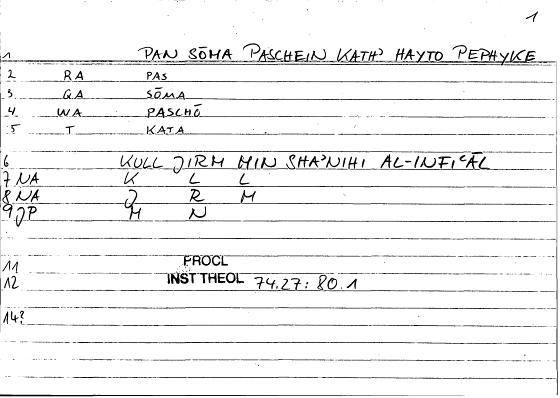 1
1 PAN SŌMA PASCHEIN KATH' HAYTO PEPHYKE
2 RA PAS
3. QA SŌMA
4. WA PASCHŌ
5 T KATA
6 KULL JIRM MIN SHA'NIHI AL-INFIʿĀL
7 NA K L L
8 NA J R M
9 JP M N
11 PROCL
12 INST THEOL 74.27: 80.1
14?